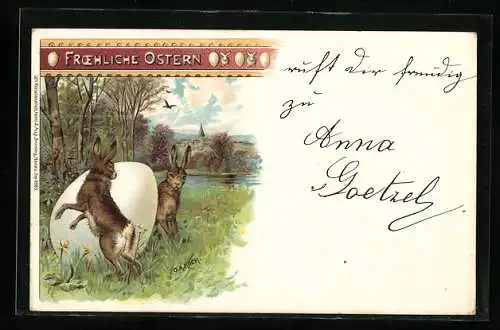 FRŒHLICHE OSTERN
ruft Dir freudig
zu
Anna
Goetzel